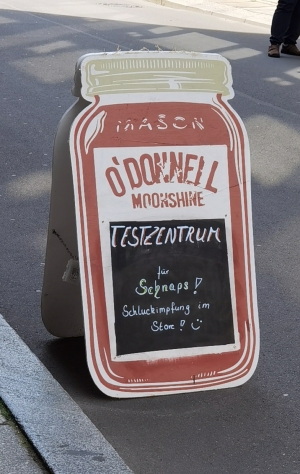 MASON
O'DONNELL
MOONSHINE
TESTZENTRUM
für
Schnaps!
Schluckimpfung im
Store! :)